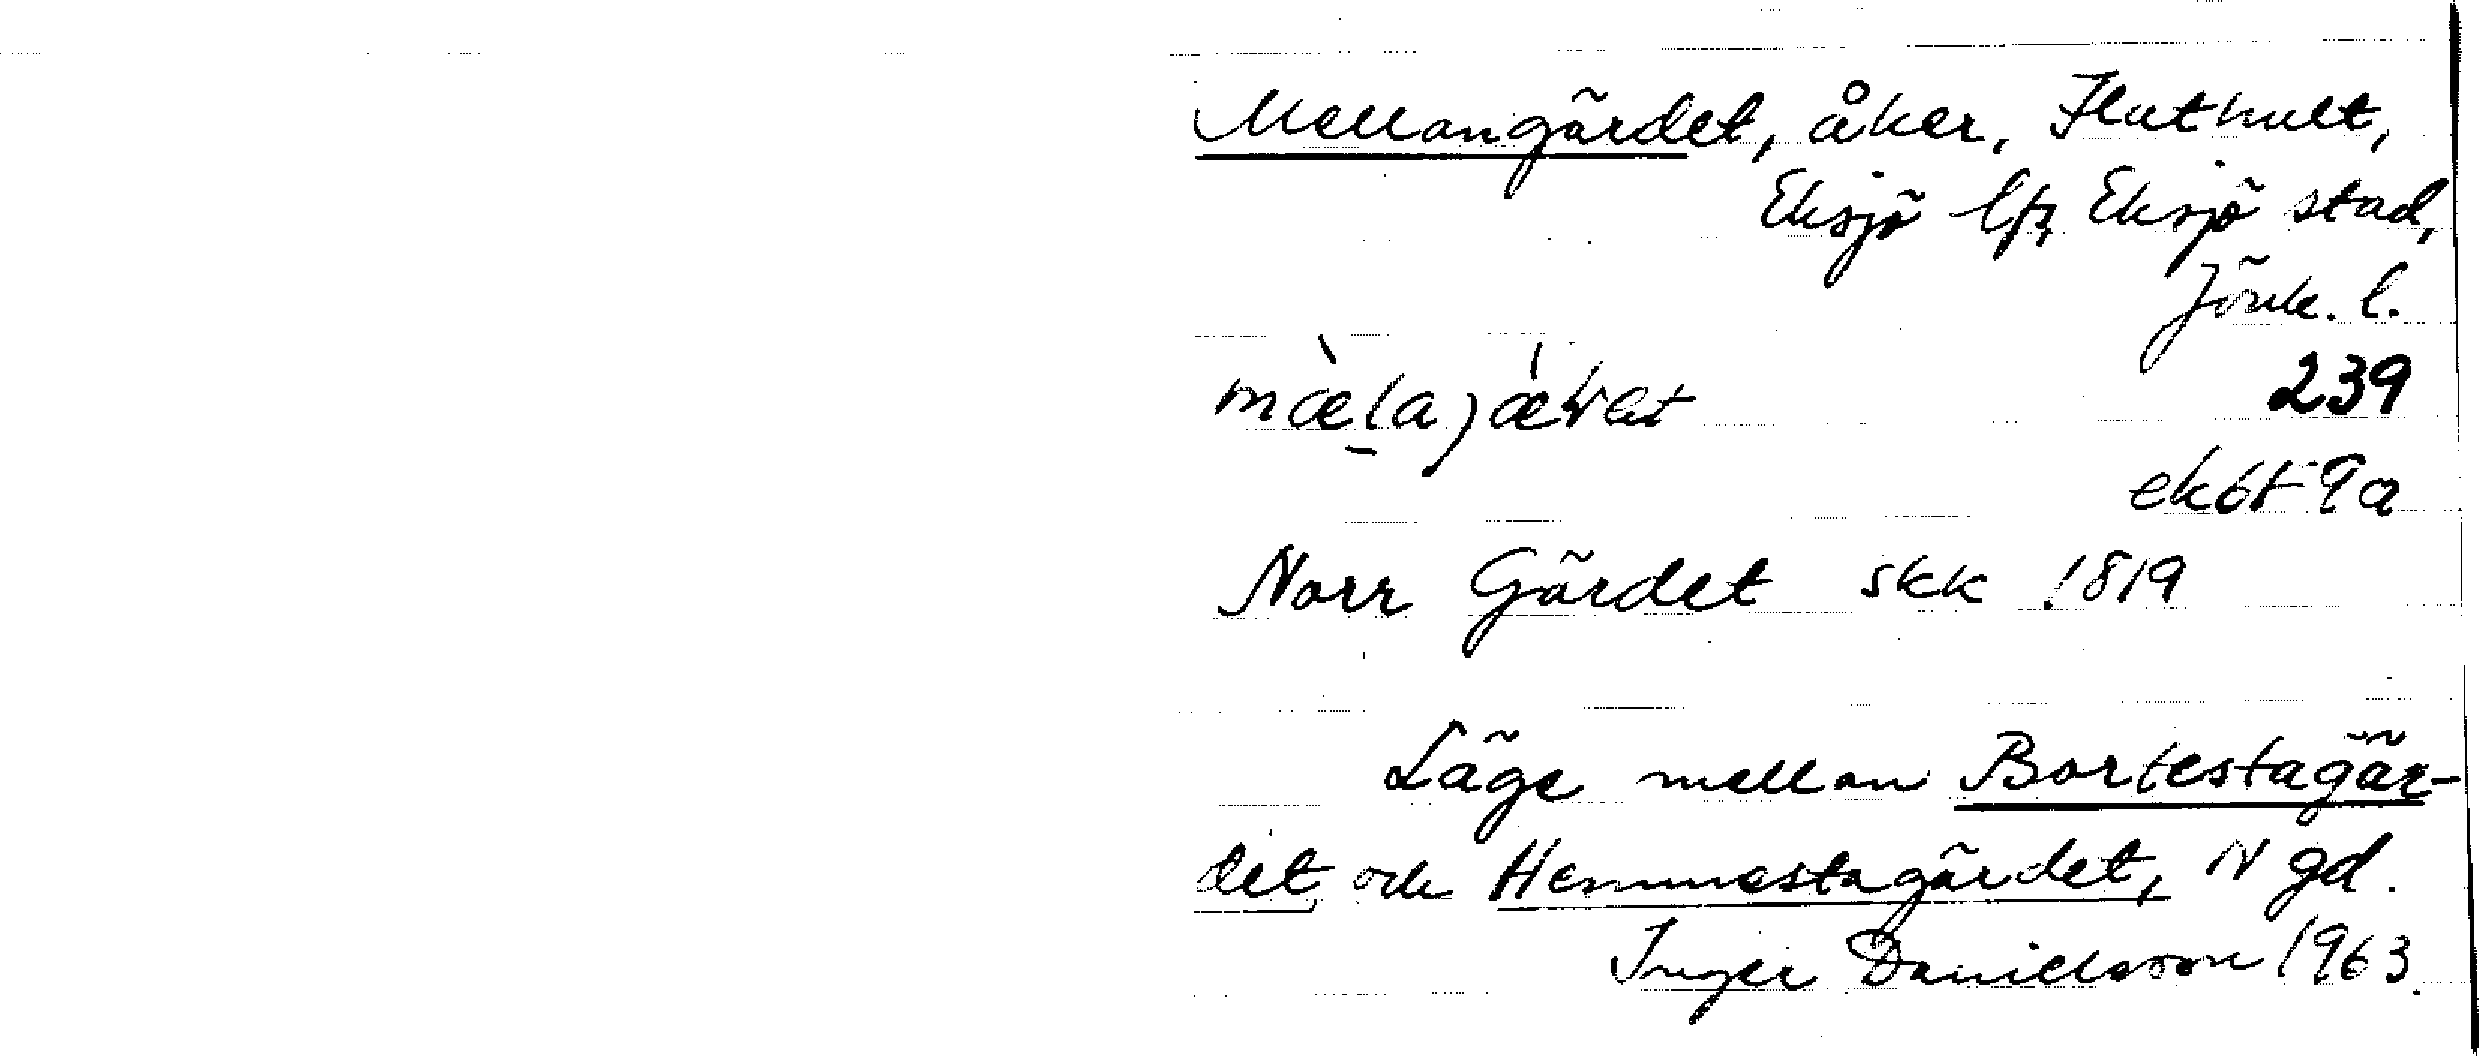 Mellangärdet, åker, Flathult,
Eksjö lfs, Eksjö stad,
Jönk. l.
239
ek 6f 9a
Norr Gärdet skk 1819
Läge mellan Bortestagär-
det och Hemmestagärdet, N gd.
Inger Danielsson 1963.